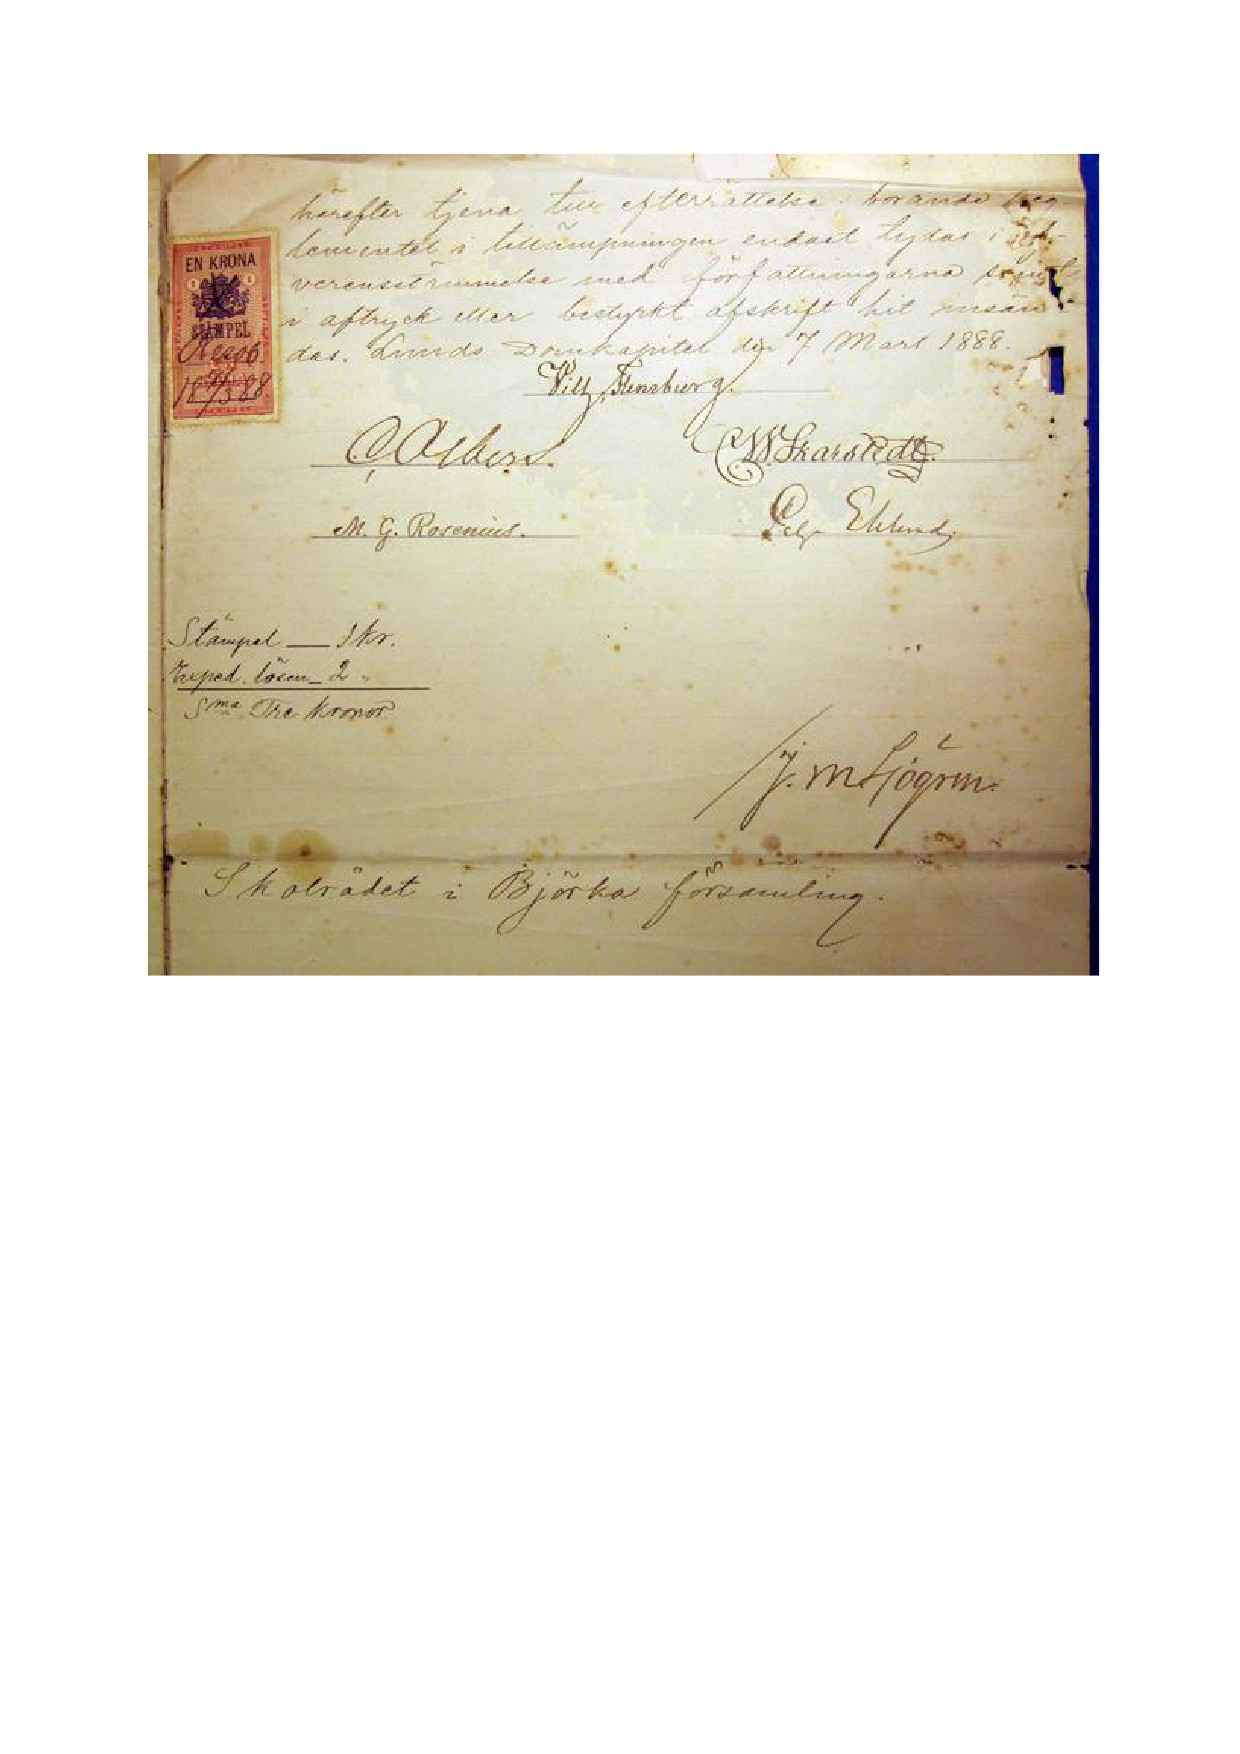 härefter tjena till efterrättelse; börande Reg-
lementet i tillämpningen endast tydas i öf-
verensstämmelse med författningarna
i aftryck eller bestyrkt afskrift hit insän-
das. Lunds Domkapitel den 7 Mars 1888.
EN KRONA
1 1
STÄMPEL
18 7/3 88.
Wilh. Flensburg.
C. Ahlberg.
C W Skarstedt.
M. G. Rosenius.
Pehr Eklund
Stämpel — 1 kr.
Exped. lösen — 2 "
Sma Tre Kronor
J. M. Sjögren.
Skolrådet i Björka församling.